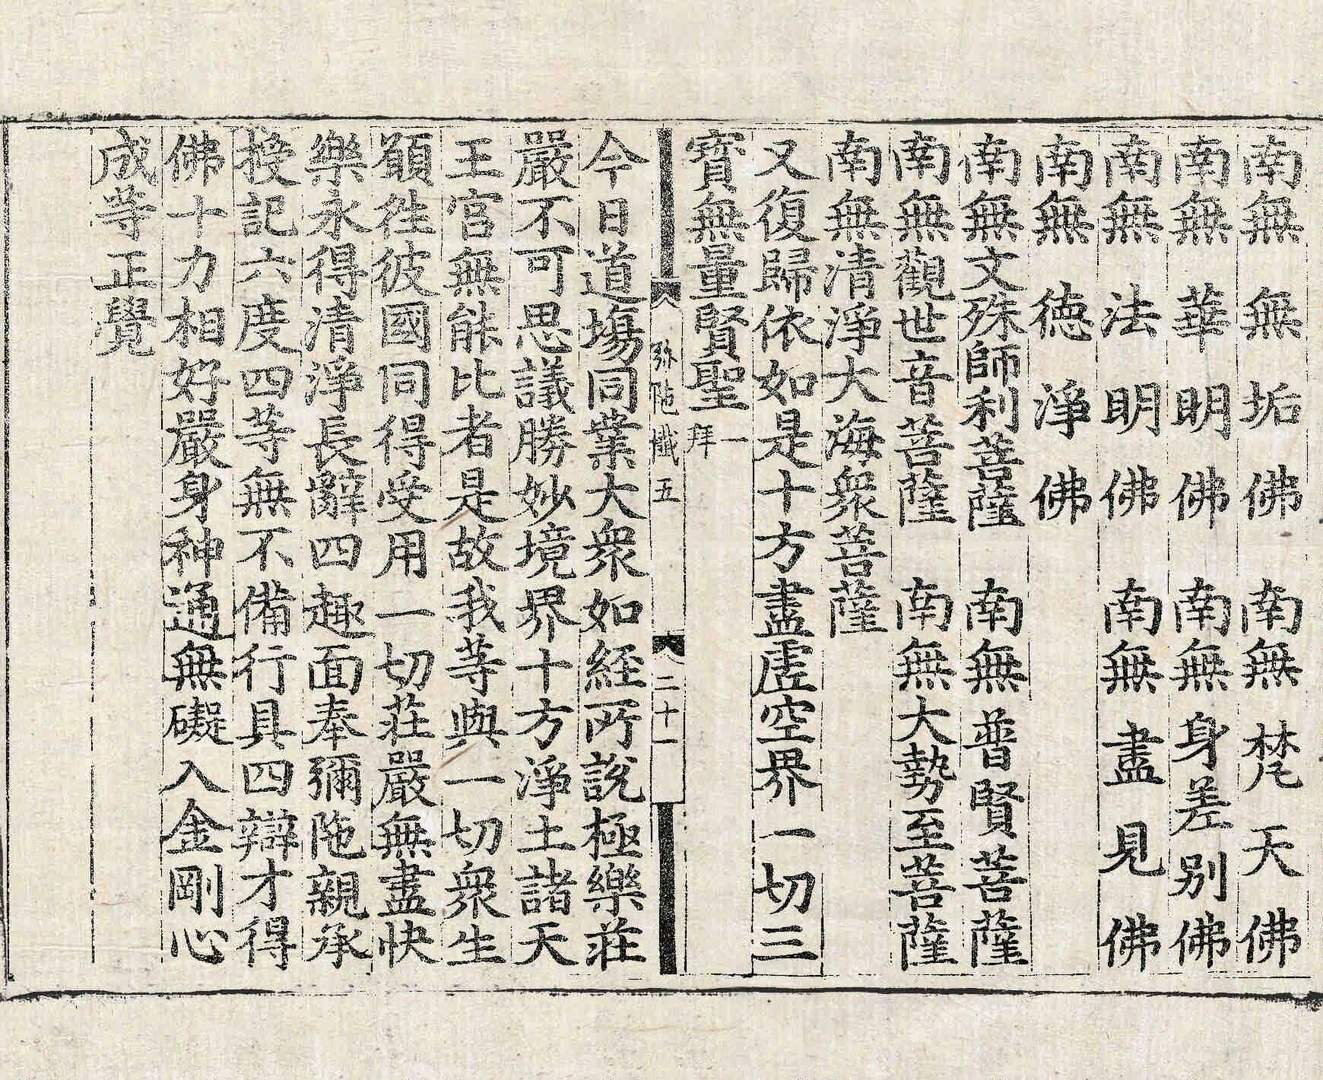 南無無垢佛　南無梵天佛
南無華明佛　南無身差别佛
南無法明佛　南無盡見佛
南無徳淨佛
南無文殊師利菩薩　南無普賢菩薩
南無觀世音菩薩　南無大勢至菩薩
南無清淨大海衆菩薩
又復歸依如是十方盡虛空界一切三
寶無量賢聖一拜
弥陁懺五　二十一
今日道塲同業大衆如經所說極樂莊
嚴不可思議勝妙境界十方淨土諸天
王宮無能比者是故我等與一切衆生
願徃彼國同得受用一切莊嚴無盡快
樂永得清淨長辭四趣面奉彌陁親承
授記六度四等無不備行具四辯才得
佛十力相好嚴身神通無礙入金剛心
成等正覺